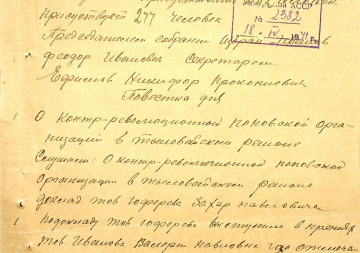 присутствует 277 человек
№ 2382
18 - IV
Председателем собрания
Феодор Иванович Секретарем
Ефимов Никифор Прокопиевич
Повестка дня
1 О контр-революционной поповской орга-
низации в тыловайском районе
Слушали: О контр-революционной поповской
организации в тыловайском районе
доклад тов гоферова Захар Павловича
1 По докладу тов гоферова выступили в прениях
тов Иванова Валерт Павловна